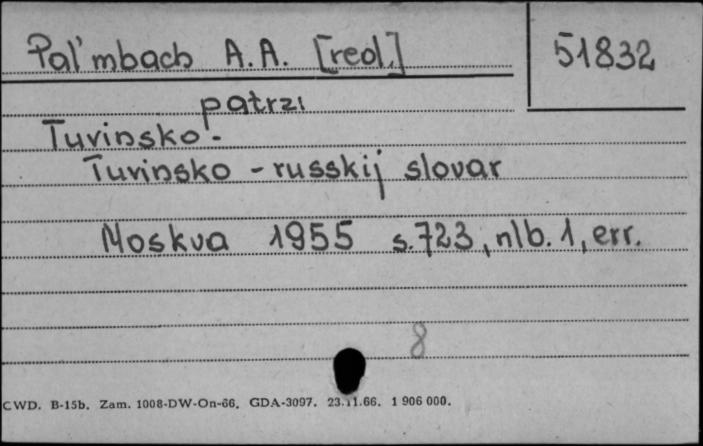 Pal'mbach A.A. [red.]
51832
patrzi
Tuvinsko -
Tuvinsko - russkij slovar
Moskva 1955 s. 723, nlb. 1, err.
8
CWD. B-15b. Zam. 1008-DW-On-66. GDA-3097. 23.11.66. 1 906 000.